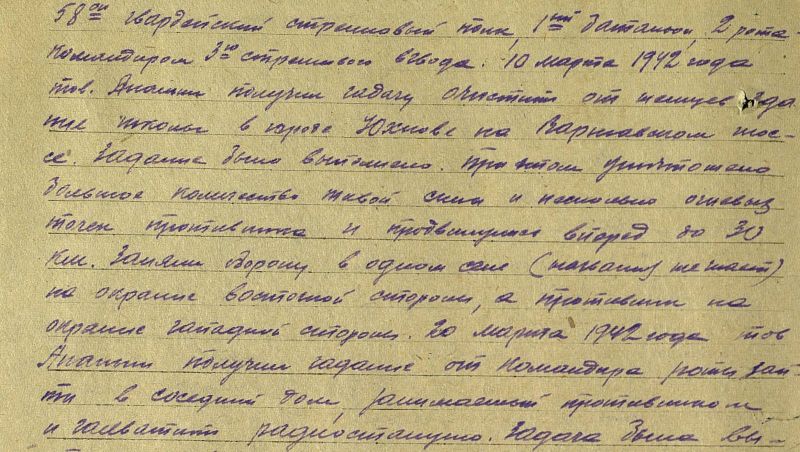 58ой гвардейский стрелковый полк, 1ый батальон, 2 рота
командиром 3го стрелкового взвода. 10 марта 1942 года
тов. Ананьин получил задачу очистить от немцев зда
ние школы в городе Юхнове на Варшавском шос-
се. Задание было выполнено. При этом уничтожено
большое количество живой силы и несколько огневых
точек противника и продвинулись вперед до 30
км. Заняли оборону в одном селе (название не знает)
на окраине восточной стороны, а противник на
окраине западной стороны. 20 марта 1942 года тов
Ананьин получил задание от командира роты зай-
ти в соседний дом, занимаемый противником
и захватить радиостанцию. Задача была вы-